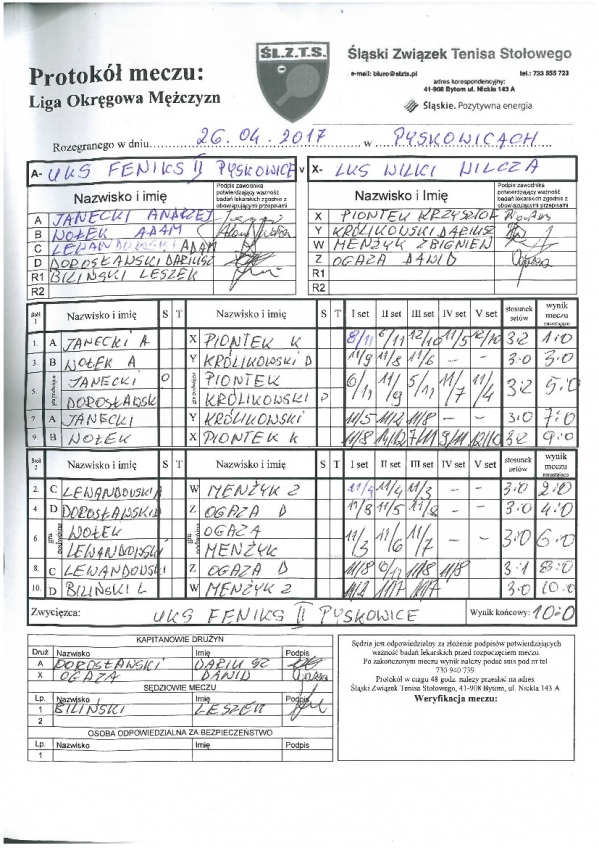 Protokół meczu:
Liga Okręgowa Mężczyzn
ŚL.Z.T.S.
Śląski Związek Tenisa Stołowego
e-mail: biuro@slzts.pl tel.: 733 555 723
adres korespondencyjny:
41-908 Bytom ul. Nickla 143 A
Śląskie. Pozytywna energia
Rozegranego w dniu 26.04.2017 w PYSKOWICACH
A- UKS FENIKS II PYSKOWICE v X- LKS WILKI WILCZA
Nazwisko i imię Podpis zawodnika potwierdzający ważność badań lekarskich zgodnie z obowiązującymi przepisami Nazwisko i Imię Podpis zawodnika potwierdzający ważność badań lekarskich zgodnie z obowiązującymi przepisami
A JANECKI ANDRZEJ X PIONTEK KRZYSZTOF
B WOŁEK ADAM Y KRÓLIKOWSKI DARIUSZ
C LEWANDOWSKI ADAM W MENŻYK ZBIGNIEW
D DOROSŁAWSKI DARIUSZ Z OGAZA DAWID
R1 BILIŃSKI LESZEK R1
R2 R2
Stół 1 Nazwisko i imię S T Nazwisko i imię S T I set II set III set IV set V set stosunek setów wynik meczu narastająco
1. A JANECKI A X PIONTEK K 8/11 6/11 12/10 11/5 12/10 3:2 1:0
3. B WOŁEK A Y KRÓLIKOWSKI D 11/9 11/8 11/6 - - 3:0 3:0
5. gra podwójna JANECKI O gra podwójna PIONTEK 6/11 11/9 5/11 11/7 11/4 3:2 5:0
DOROSŁAWSKI KRÓLIKOWSKI
7. A JANECKI Y KRÓLIKOWSKI 11/5 11/2 11/8 - - 3:0 7:0
9. B WOŁEK X PIONTEK K 11/8 14/12 7/11 9/11 12/10 3:2 9:0
Stół 2 Nazwisko i imię S T Nazwisko i imię S T I set II set III set IV set V set stosunek setów wynik meczu
2. C LEWANDOWSKI A W MENŻYK Z 11/4 11/3 - - 3:0 2:0
4. D DOROSŁAWSKI D Z OGAZA D 11/8 11/5 - - 3:0 4:0
6. gra podwójna WOŁEK gra podwójna OGAZA 11/3 11/6 11/7 - - 3:0 6:0
LEWANDOWSKI MENŻYK
8. C LEWANDOWSKI Z OGAZA D 11/8 11/8 11/8 - 3:1 8:0
10. D BILIŃSKI L W MENŻYK Z 11/2 11/7 11/7 - - 3:0 10:0
Zwycięzca: UKS FENIKS II PYSKOWICE Wynik końcowy: 10:0
KAPITANOWIE DRUŻYN
Druż Nazwisko Imię Podpis
A DOROSŁAWSKI DARIUSZ
X OGAZA DAWID
SĘDZIOWIE MECZU
Lp. Nazwisko Imię Podpis
1 BILIŃSKI LESZEK
2
OSOBA ODPOWIEDZIALNA ZA BEZPIECZEŃSTWO
Lp. Nazwisko Imię Podpis
1
Sędzia jest odpowiedzialny za złożenie podpisów potwierdzających
ważność badań lekarskich przed rozpoczęciem meczu.
Po zakończonym meczu wynik należy podać sms pod nr tel
730 940 739.
Protokół w ciągu 48 godz. należy przesłać na adres.
Śląski Związek Tenisa Stołowego, 41-908 Bytom, ul. Nickla 143 A
Weryfikacja meczu: